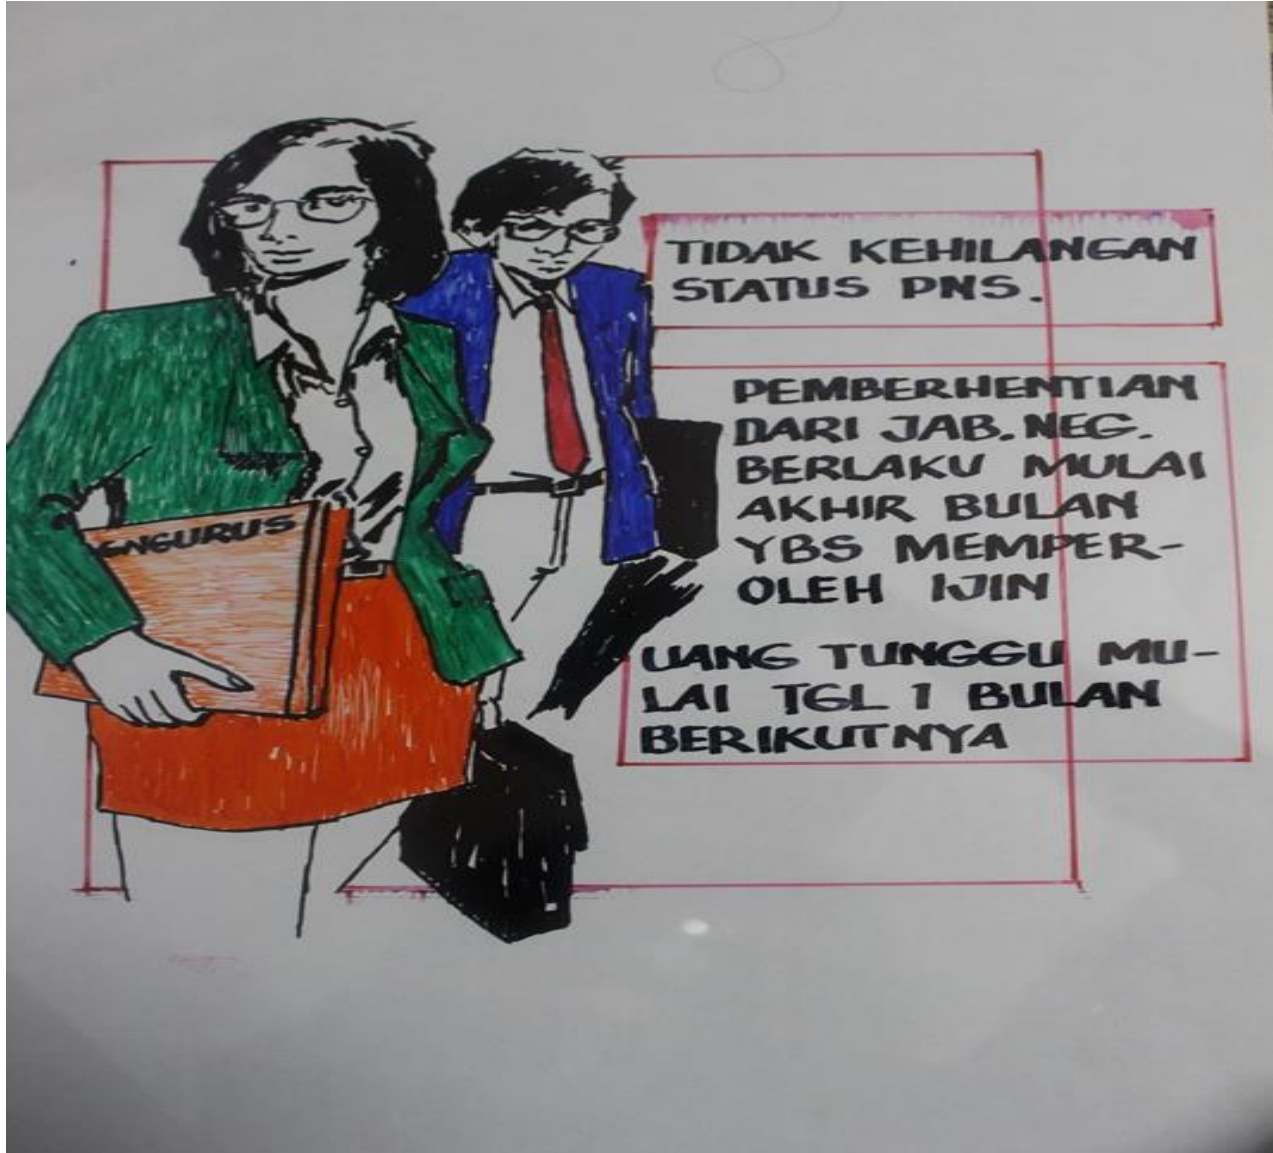 TIDAK KEHILANGAN
STATUS PNS.
PEMBERHENTIAN
DARI JAB. NEG.
BERLAKU MULAI
AKHIR BULAN
YBS MEMPER-
OLEH IJIN
UANG TUNGGU MU-
LAI TGL 1 BULAN
BERIKUTNYA
ENGURUS